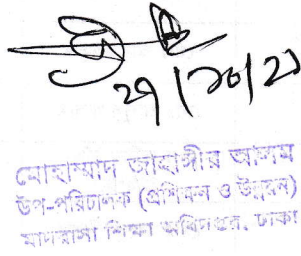 ২৭/১০/২১
মোহাম্মাদ জাহাঙ্গীর আলম
উপ-পরিচালক (প্রশিক্ষণ ও উন্নয়ন)
মাদরাসা শিক্ষা অধিদপ্তর, ঢাকা